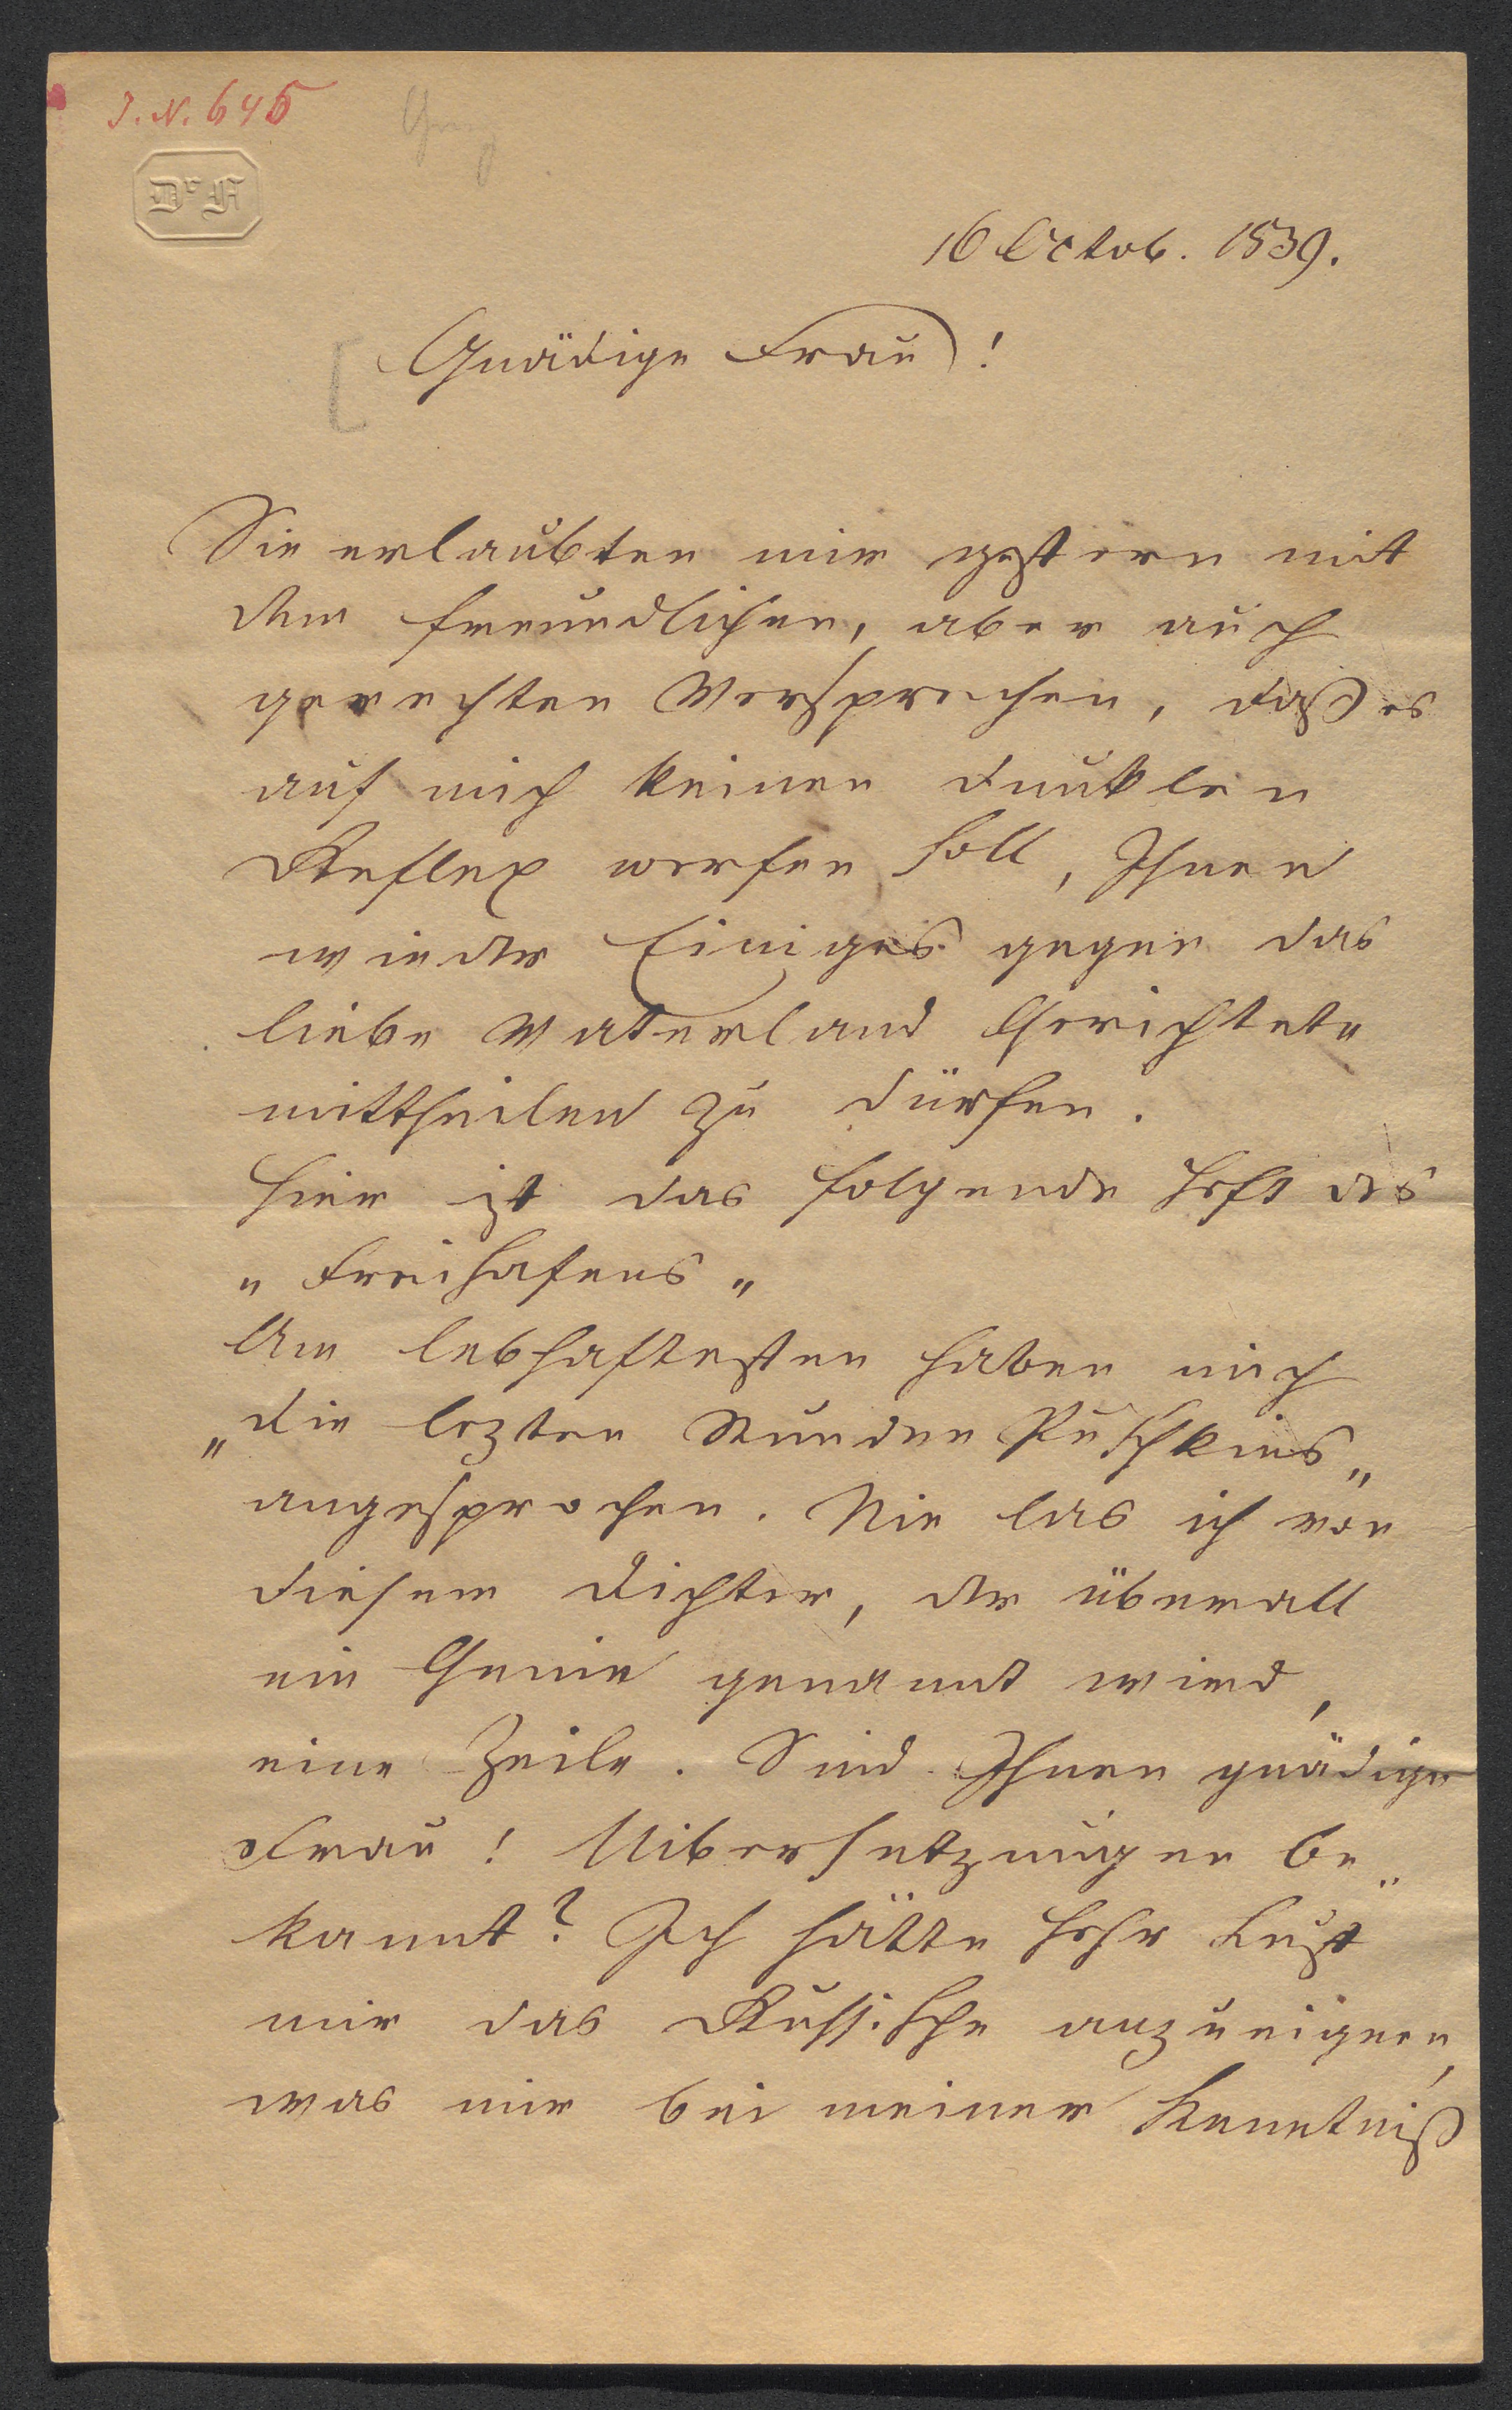 J. N. 645
Dr F
16 Octob. 1839.
Gnädige Frau!
Sie erlaubten mir gestern mit
dem freundlichen, aber auch
gerechten Versprechen, daß es
auf mich keinen dunklen
Reflex werfen soll, Ihnen
wieder Einiges gegen das
liebe Vaterland Gerichtete
mittheilen zu dürfen.
Hier ist das folgende Heft des
"Freihafens"
Am lebhaftesten haben mich
"die lezten Stunden Puschkins"
angesprochen. Nie las ich von
diesem Dichter, der überall
ein Genie genannt wird,
eine Zeile. Sind Ihnen gnädige
Frau! Uibersetzungen be-
kannt? Ich hätte sehr Lust
mir das Russische anzueignen,
was mir bei meiner Kenntniß